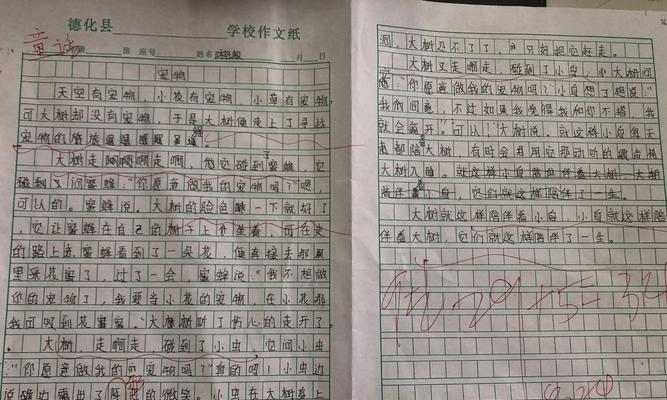 德化县 学校作文纸
童话
班 座号 姓名 月 日
宠物
天空有宠物，小花有宠物，小草有宠物，
可大树却没有宠物，于是大树便走上了寻找
宠物的
大树走啊啊走啊，它碰到蜜蜂，它
问蜜蜂："你愿意做我的宠物吗？"嗯，
可以的。蜜蜂说。大树的脸色一下就好了
，它让蜜蜂在自己的树干上坐着，可在走
的路上，蜜蜂看到了一朵花，便直接去那
里采花蜜了，过了一会，蜜蜂说："我不想做
你的宠物了，我要当小花的宠物，在小花那
我可吸到花蜜。"大树听了伤心的走开了。
大树走啊走，碰到了小虫，它问小虫
："你愿意做我的宠物吗？"真的吗！小虫边
说边露出了的微笑。小虫在大树身上
洞，大树忍不了了，只好把它赶走。
大树又走啊走，碰到了小鸟，小大树问
："你愿意做我的宠物吗？"小鸟想了想说："
我们同意，不过如果我觉得我和你不搭，我
就会离开。"可以！"大树说。就这样小鸟每天
都陪大树，有时会用它那动听的
大树入睡。就这样小鸟陪伴着大树，大树
陪伴着小鸟，它们就这样陪伴了一生。
大树就这样陪伴着小鸟，小鸟就这样陪
伴着大树，它们就这样陪伴了一生。
29+5=34